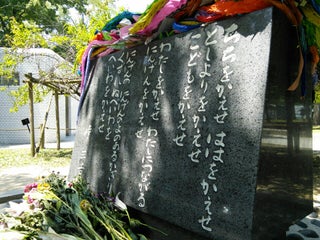 ちちをかえせ ははをかえせ
としよりをかえせ
こどもをかえせ
わたしをかえせ わたしにつながる
にんげんをかえせ
にんげんの にんげんのよのあるかぎり
くずれぬへいわを
へいわをかえせ